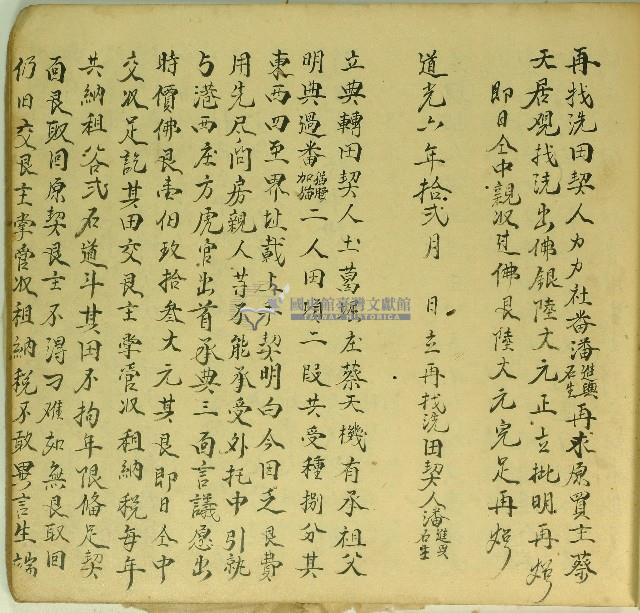 再找洗田契人力力社番潘進興石生再求原買主蔡
天居覌找洗出佛銀陸大元正立批明再炤
即日仝中親収过佛艮陸大元完足再炤
道光六年拾弍月　日立再找洗田契人潘進興石生
立典轉田契人土葛堀庄蔡天機有承祖父
明典過番加猫二人田項二段共受種捌分其
東西四至界址載上手契明白今因乏艮費
用先尽问房親人等不能承受外托中引就
与港西庄方虎官出首承典三面言議愿出
時價佛艮壹伯玖拾叁大元其艮即日仝中
交収足訖其田交艮主掌管収租納税每年
共納租谷弍石道斗其田不拘年限俻足契
面艮取回原契艮主不得刁难如無艮取回
仍旧交艮主掌管収租納税不敢異言生端
國史館臺灣文獻館
TAIWAN HISTORICA